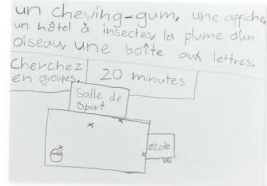 un chewing-gum, une affiche,
un hôtel à insectes, la plume d'un
oiseau, une boîte aux lettres.
Cherchez
en groupes.
20 minutes
Salle de
Sport
école